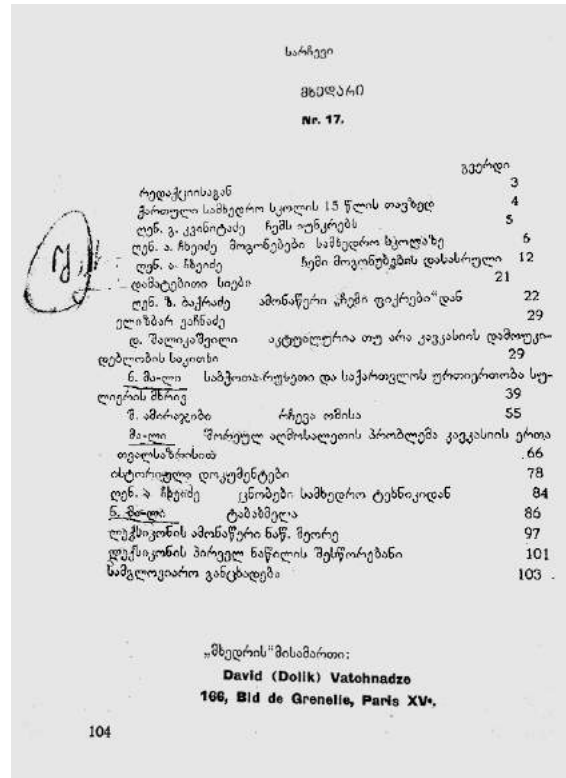 სარჩევი
მხედარი
Nr. 17.
გვერდი
რედაქციისაგან 3
ქართული სამხედრო სკოლის 15 წლის თავზედ 4
ღენ. გ. კვინიტაძე ჩემს იუნკრებს 5
ღენ. ა. ჩხეიძე მოგონებები სამხედრო სკოლაზე 6
ღენ. ა. ჩხეიძე ჩემი მოგონებების დასასრული 12
დამატებითი სიები 21
ღენ. ზ. ბაქრაძე ამონაწერი „ჩემი ფიქრები“დან 22
ელიზბარ ვაჩნაძე 29
დ. შალიკაშვილი აკტუალურია თუ არა კავკასიის დამოუკი-
დებლობის საკითხი 29
ნ. მა-ლი საბჭოთა რუსეთი და საქართველოს ურთიერთობა სუ-
ლიერის მხრივ 39
შ. ამირაჯიბი რჩევა ომისა 55
მა-ლი შორეულ აღმოსალეთის პრობლემა კავკასიის ერთა
თვალსაზრისით 66
ისტორიული დოკუმენტები 78
ღენ. ა. ჩხეიძე ცნობები სამხედრო ტეხნიკიდან 84
ნ. მა-ლი ტაბახმელა 86
ლექსიკონის ამონაწერი ნაწ. მეორე 97
ლექსიკონის პირველ ნაწილის შესწორებანი 101
სამგლოვიარო განცხადება 103
„მხედრის“ მისამართი:
David (Dolik) Vatchnadze
166, Bld de Grenelle, Paris XVe.
104